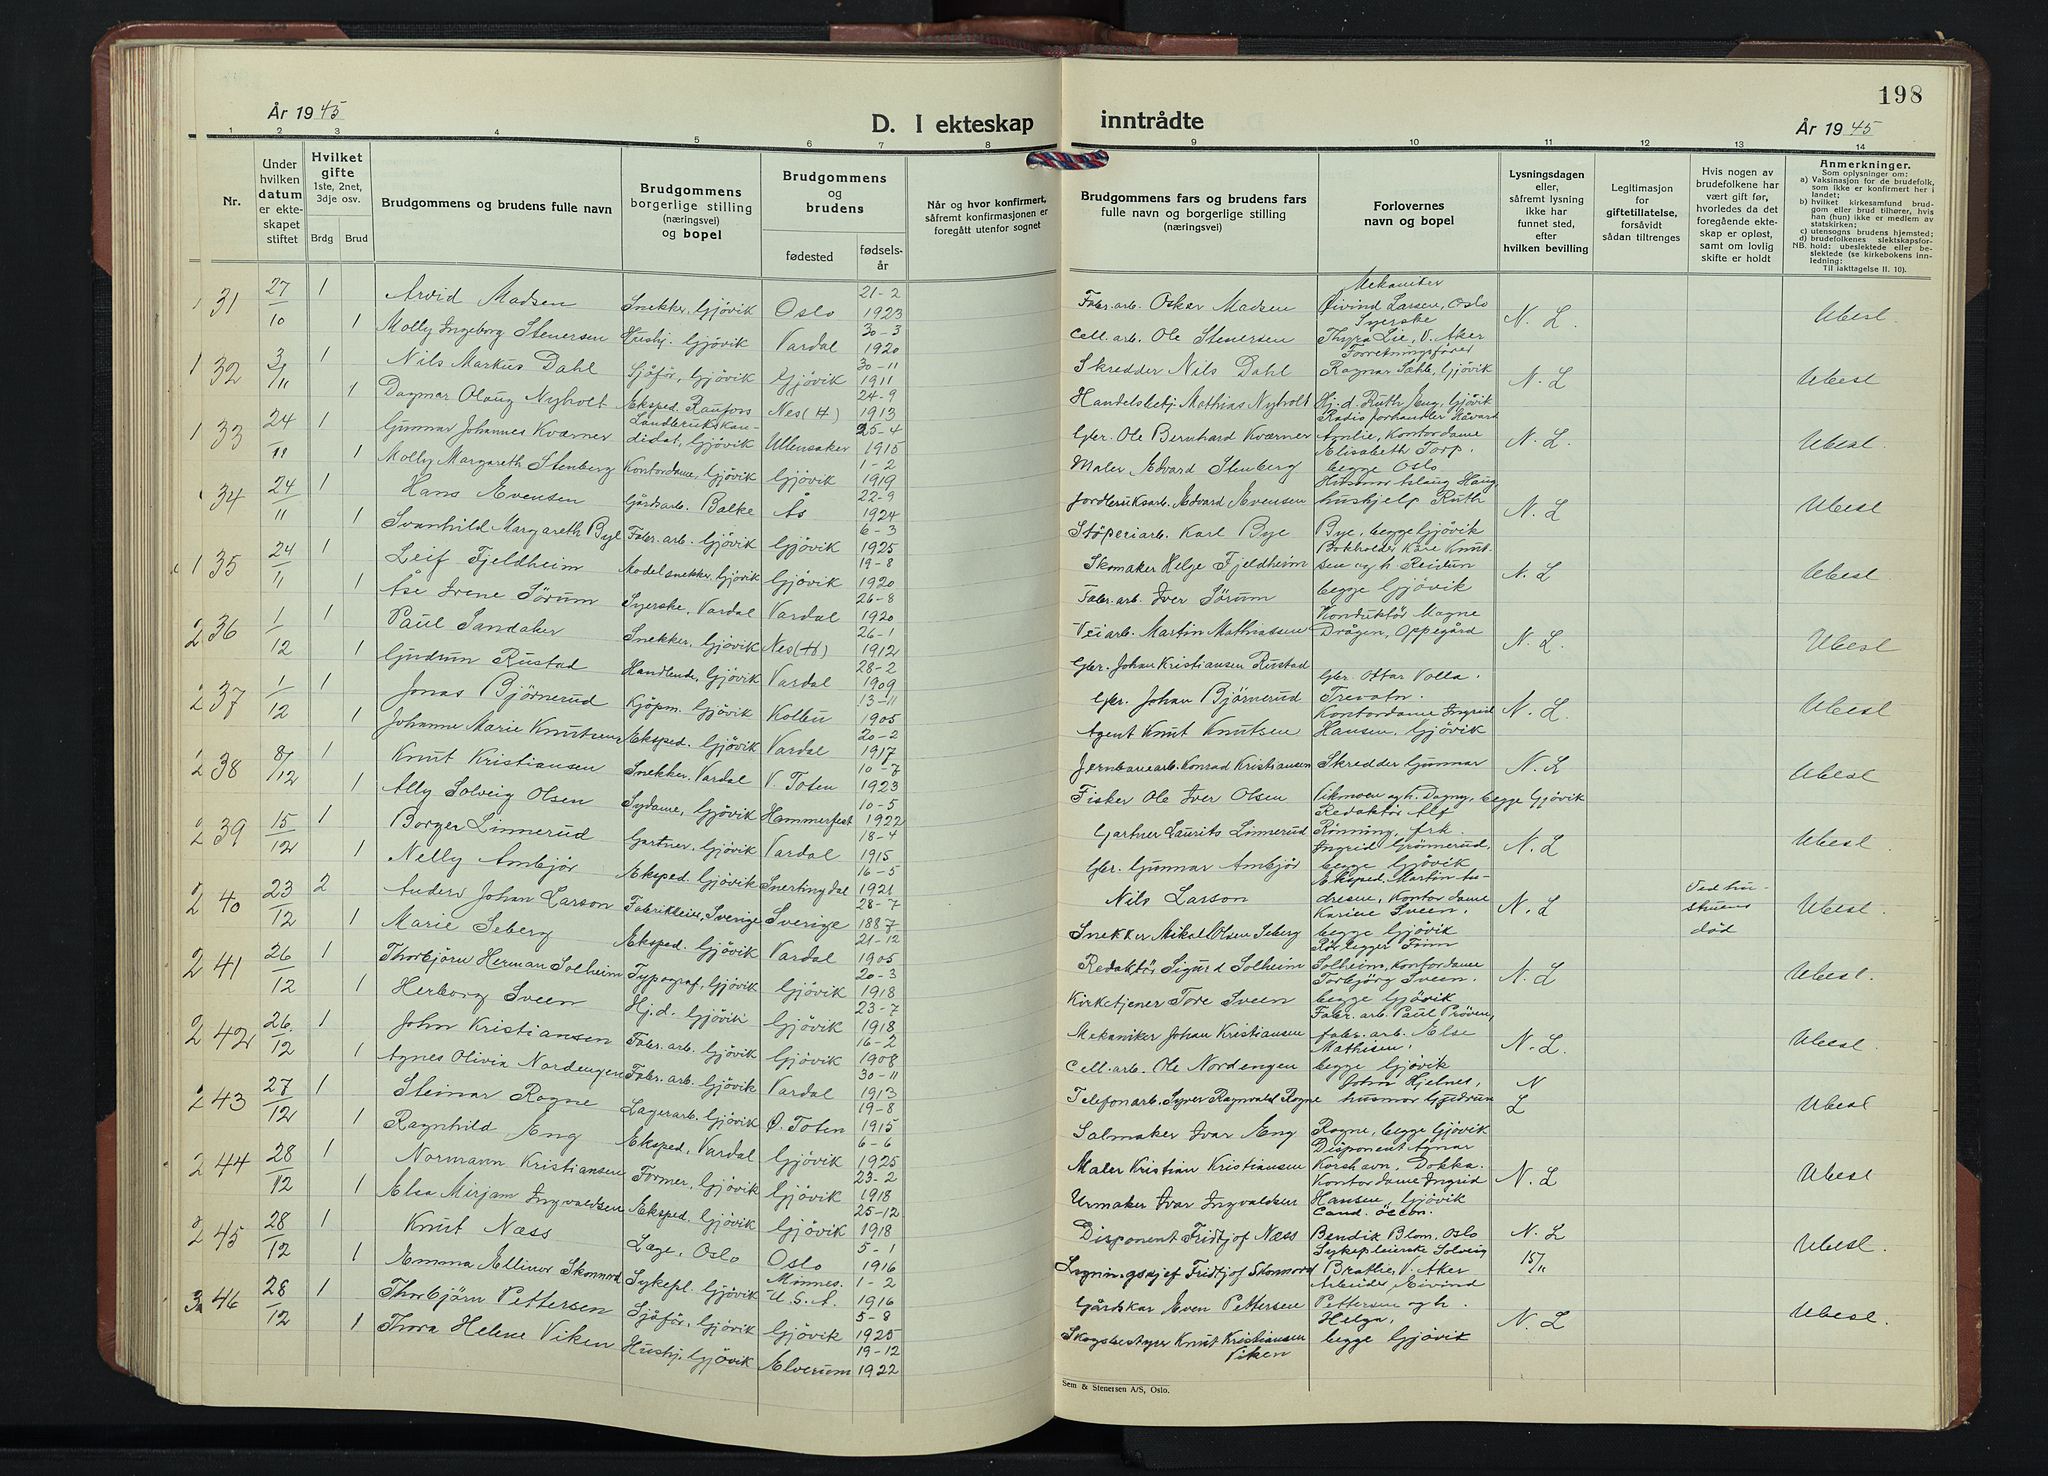 198
År 1945
D. I ekteskap inntrådte
År 1945
1 2 3 4 5 6 7 8 9 10 11 12 13 14
Nr.
Under hvilken datum er ekteskapet stiftet
Hvilket gifte 1ste, 2net, 3dje osv.
Brdg Brud
Brudgommens og brudens fulle navn
Brudgommens borgerlige stilling (næringsvei) og bopel
Brudgommens og brudens
fødested fødsels-år
Når og hvor konfirmert, såfremt konfirmasjonen er foregått utenfor sognet
Brudgommens fars og brudens fars fulle navn og borgerlige stilling (næringsvei)
Forlovernes navn og bopel
Lysningsdagen eller, såfremt lysning ikke har funnet sted, efter hvilken bevilling
Legitimasjon for giftetillatelse, forsåvidt sådan tiltrenges
Hvis nogen av brudefolkene har vært gift før, hvorledes da det foregående ekteskap er opløst, samt om lovlig skifte er holdt
Anmerkninger.
Som oplysninger om:
a) Vaksinasjon for de brudefolk, som ikke er konfirmert her i landet;
b) hvilket kirkesamfund brudgom eller brud tilhører, hvis han (hun) ikke er medlem av statskirken;
c) utensogns brudens hjemsted;
d) brudefolkenes slektskapsforhold: ubeslektede eller beslektede (se kirkebokens innledning:
NB.
Til iakttagelse II. 10).
131 27/10 1 Arvid Madsen Snekker, Gjøvik Oslo 21-2 1923 Fabr. arb. Oskar Madsen Mekaniker Øivind Larsen, Oslo N. L. Ubesl.
1 Molly Ingeborg Stenersen Hushj. Gjøvik Vardal 30-3 1920 Cell. arb. Ole Stenersen Syerske Thyra Lie, V. Aker
132 3/11 1 Nils Markus Dahl Sjåfør, Gjøvik Gjøvik 30-11 1911 Skredder Nils Dahl Forretningsfører Ragnar Dahl, Gjøvik N. L Ubesl
1 Dagmar Olaug Nyholt Eksped. Raufoss Nes (H) 24-9 1913 Handelsbetj. Mathias Nyholt Hj. d. Ruth Eng, Gjøvik
133 24/11 1 Gunnar Johannes Kværner Landbrukskandidat, Gjøvik Ullensaker 25-4 1915 Gbr. Ole Bernhard Kværner Radioforhandler Håvard Amlie, Kontordame N. L. Ubesl
1 Molly Margareth Stenberg Kontordame, Gjøvik Gjøvik 1-2 1919 Maler Edvard Stenberg Elisabeth Torp, begge Oslo
134 24/11 1 Hans Evensen Gårdsarb. Balke Ås 22-9 1924 Jordbruksarb. Edvard Evensen Husmor Aslaug Haug, hushjelp Ruth N. L Ubesl
1 Svanhild Margareth Bye Fabr. arb. Gjøvik Gjøvik 6-3 1925 Støperiarb. Karl Bye Bye, begge Gjøvik
135 24/11 1 Leif Fjeldheim Modelsnekker, Gjøvik Gjøvik 19-8 1920 Skomaker Helge Fjeldheim Bokholder Kåre Knutsen og h. Reidun N. L Ubesl
1 Åse Irene Sørum Syerske, Vardal Vardal 26-8 1920 Fabr. arb. Iver Sørum begge Gjøvik
236 1/12 1 Paul Sandaker Snekker, Gjøvik Nes (H) 26-1 1912 Veiarb. Martin Mathiassen Konduktør Magne Drågen, Oppegård N. L. Ubesl
1 Gudrun Rustad Handlende, Gjøvik Vardal 28-2 1909 Gbr. Johan Kristiansen Rustad Gbr. Ottar Volla.
237 1/12 1 Jonas Bjørnerud Kjøpm. Gjøvik Kolbu 13-11 1905 Gbr. Johan Bjørnerud Trevatn. N. L. Ubesl
1 Johanne Marie Knutsen Eksped. Gjøvik Vardal 20-2 1917 Agent Knut Knutsen Kontordame Ingrid Hansen, Gjøvik
238 8/12 1 Knut Kristiansen Snekker, Vardal V. Toten 10-7 1923 Jernbanearb. Konrad Kristiansen Skredder Gunnar N. L Ubesl
Ally Solveig Olsen Sydame, Gjøvik Hammerfest 10-5 1922 Fisker Ole Iver Olsen Vikmoen og h. Dagny, begge Gjøvik
239 15/12 1 Borger Linnerud Gartner, Gjøvik Vardal 18-4 1915 Gartner Laurits Linnerud Redaktør Alf Rønning, frk. N. L Ubesl
1 Nelly Ambjør Eksped. Gjøvik Snertingdal 16-5 1921 Gbr. Gunnar Ambjør Ingrid Grømerud, begge Gjøvik
240 23/12 2 Anders Johan Larson Fabrikkeier, Sverige Sverige 28-7 1887 Nils Larson Eksped. Martin Andresen, Kontordame N. L Ved hustruens død Ubesl
1 Marie Seberg Eksped. Gjøvik Vardal 21-12 1905 Snekker Mikal Olsen Seberg Karine Sveen, begge Gjøvik
241 26/12 1 Thorbjørn Herman Solheim Typograf, Gjøvik Gjøvik 20-3 1918 Redaktør Sigurd Solheim Rørlegger Finn Solheim, Kontordame N. L Ubesl
1 Herborg Sveen Hj. d. Gjøvik Gjøvik 23-7 1918 Kirketjener Tore Sveen Torbjørg Sveen, begge Gjøvik
242 26/12 1 John Kristiansen Fabr. arb. Gjøvik Gjøvik 16-2 1908 Mekaniker Johan Kristiansen Fabr. arb. Paul Prøven, fabr. arb. Else N. L. Ubesl
1 Agnes Olivia Nordengen Fabr. arb. Gjøvik Vardal 30-11 1913 Cell. arb. Ole Nordengen Mathisen, begge Gjøvik
243 27/12 1 Steinar Rogne Lagerarb. Gjøvik Ø. Toten 19-8 1915 Telefonarb. Syver Ragnvald Rogne John Hjelnes, husmor Gudrun N L Ubesl
1 Ragnhild Eng Eksped, Vardal Gjøvik 6-6 1925 Salmaker Ivar Eng Rogne, begge Gjøvik
244 28/12 1 Normann Kristiansen Former, Gjøvik Gjøvik 23-2 1918 Maler Kristian Kristiansen Disponent Agnar Korshavn, Dokka. N. L Ubesl
1 Elsa Mirjam Ingvaldsen Eksped. Gjøvik Gjøvik 25-12 1918 Urmaker Ivar Ingvaldsen Kontordame Ingrid Hansen, Gjøvik
245 28/12 1 Knut Næss Lege, Oslo Oslo 5-1 1916 Disponent Fridtjof Næss Cand. oecon. Bendik Blom, Oslo N. L 15/11 Ubesl.
1 Emma Ellinor Skonnord Sykepl. Gjøvik Minnes. U.S.A. 1-2 1916 Fridtjof Skonnord Sykepleierske Solveig Brattlie, V. Aker
246 28/12 1 Thorbjørn Pettersen Sjåfør, Gjøvik Gjøvik 5-8 1925 Gårdskar Even Pettersen Arbeider Eivind Pettersen og h. N L Ubesl.
1 Thora Helene Viken Hushj. Gjøvik Elverum 19-12 1922 Skogsbestyrer Knut Kristiansen Viken Helga, begge Gjøvik
Sem & Stenersen A/S, Oslo.